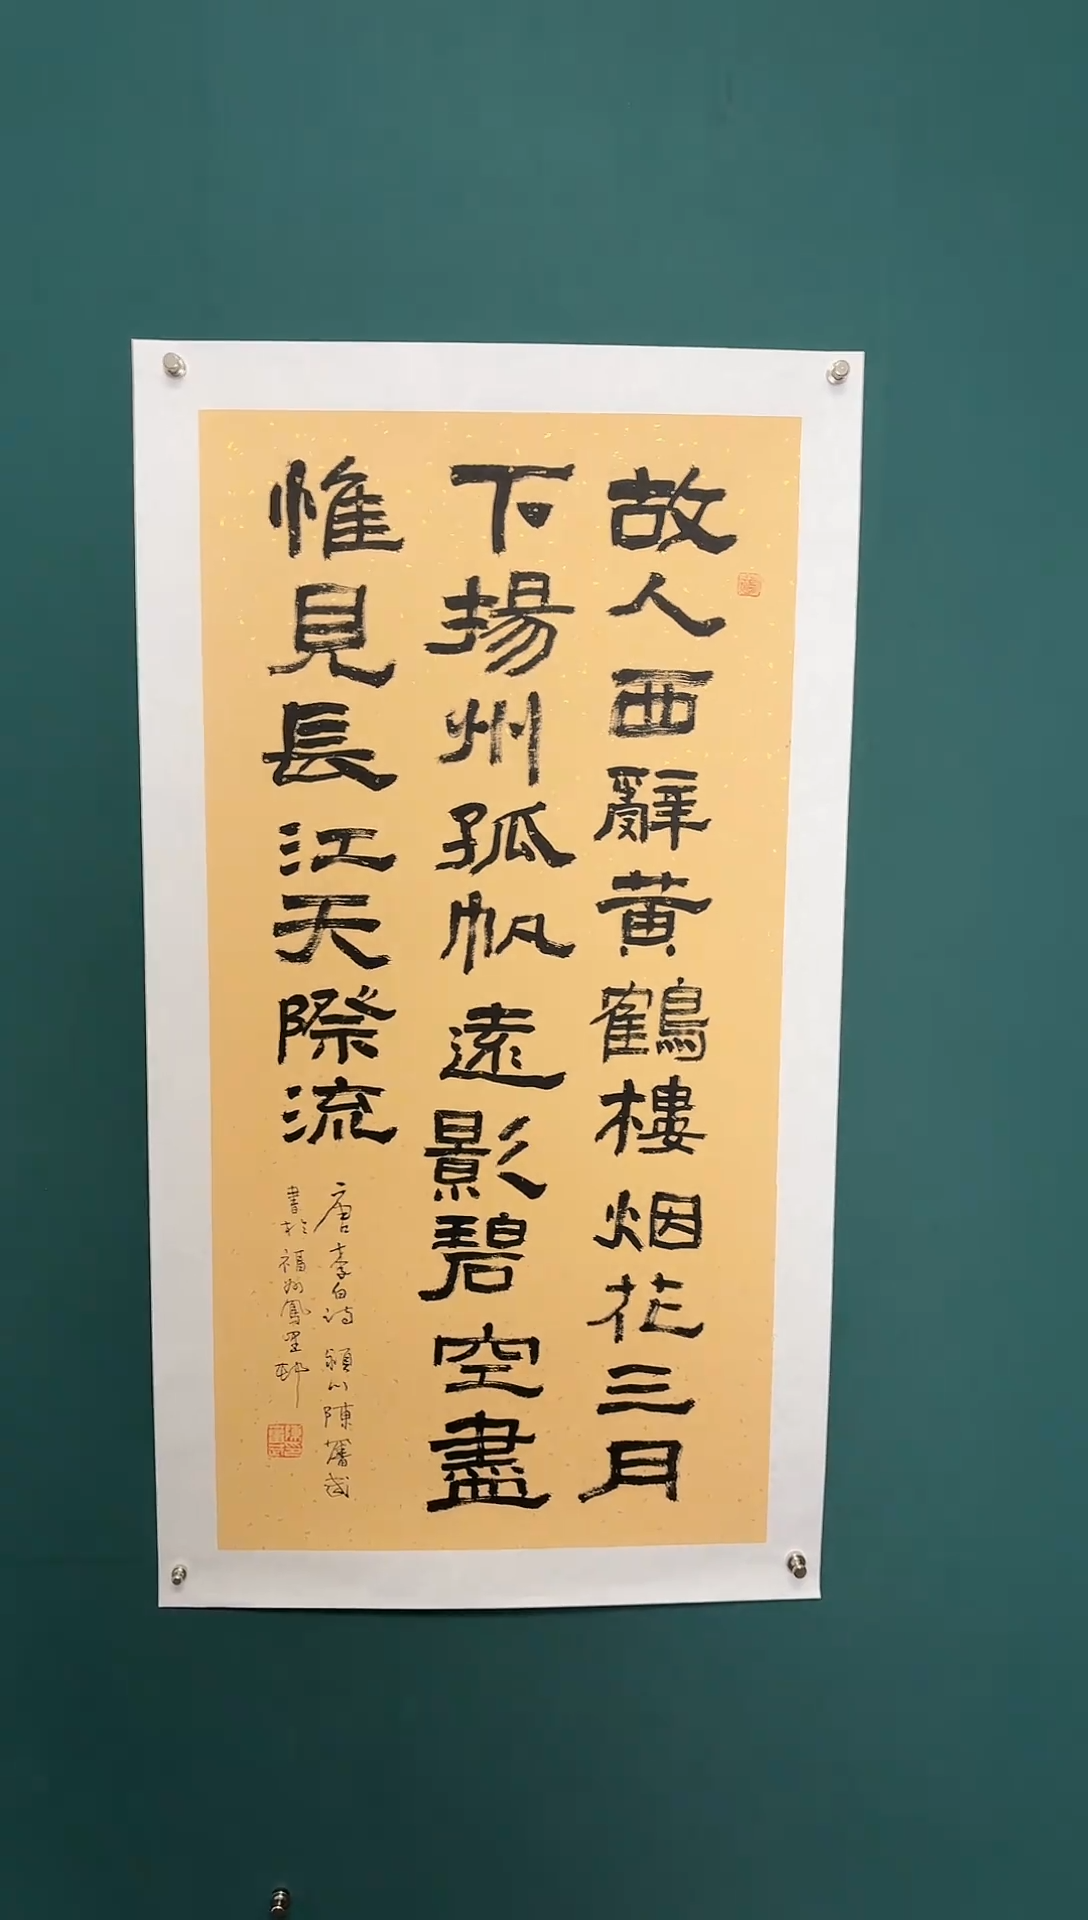 故人西辭黃鶴樓烟花三月
下揚州孤帆遠影碧空盡
惟見長江天際流
唐李白詩 潁川陳
書於福州鳳里邨